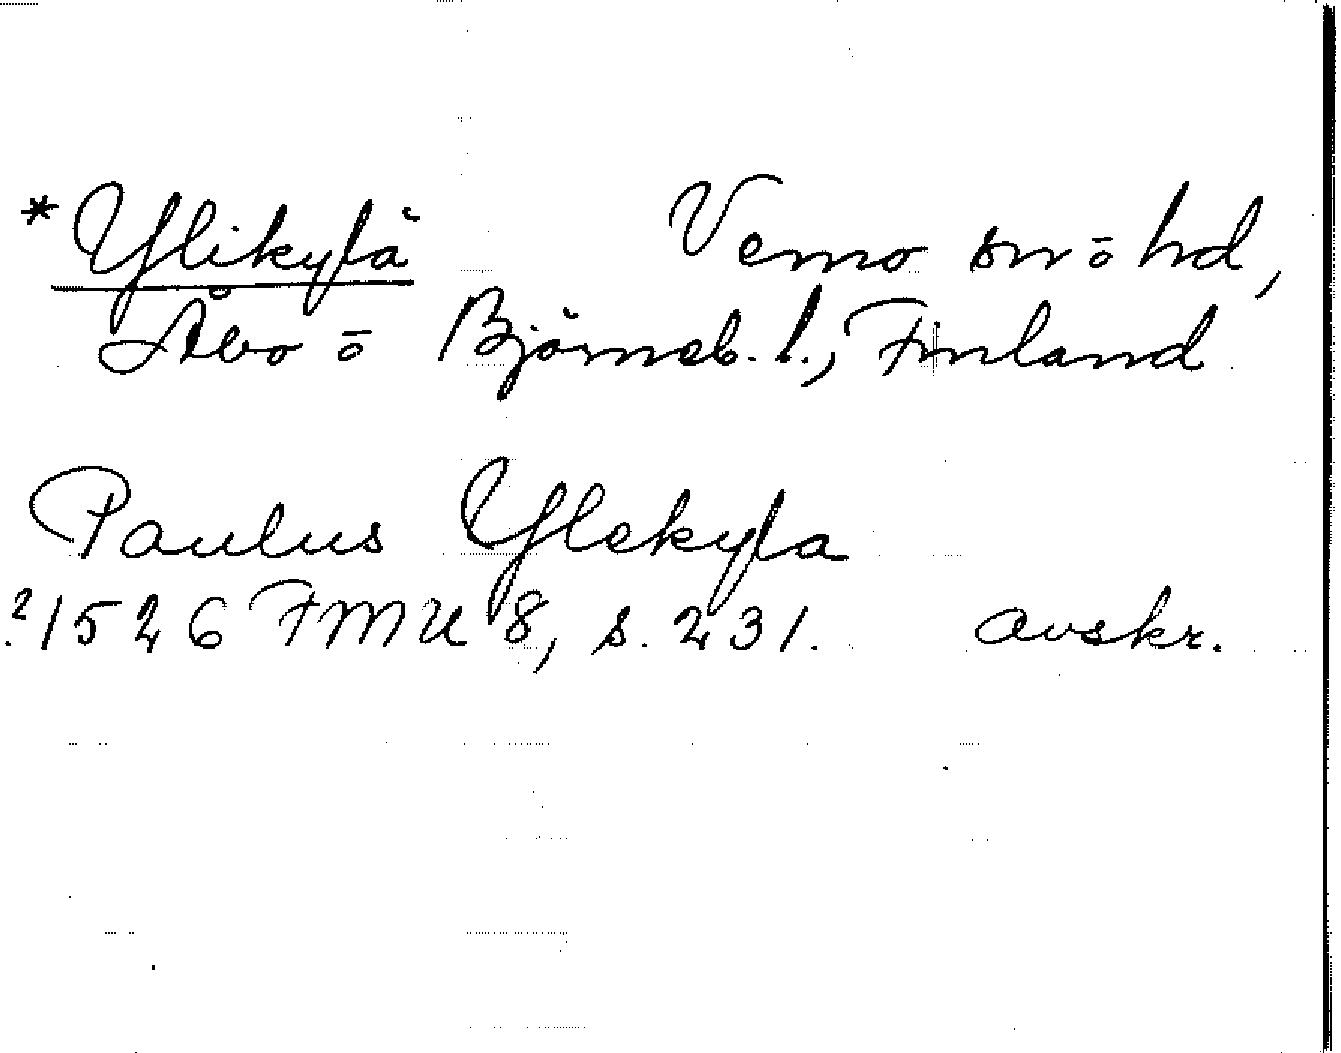 *Ylikylä Vemo sn ō hd,
Åbo ō Björneb. l., Finland
Paulus Ylekyla
?1526 FMU 8, s. 231. avskr.